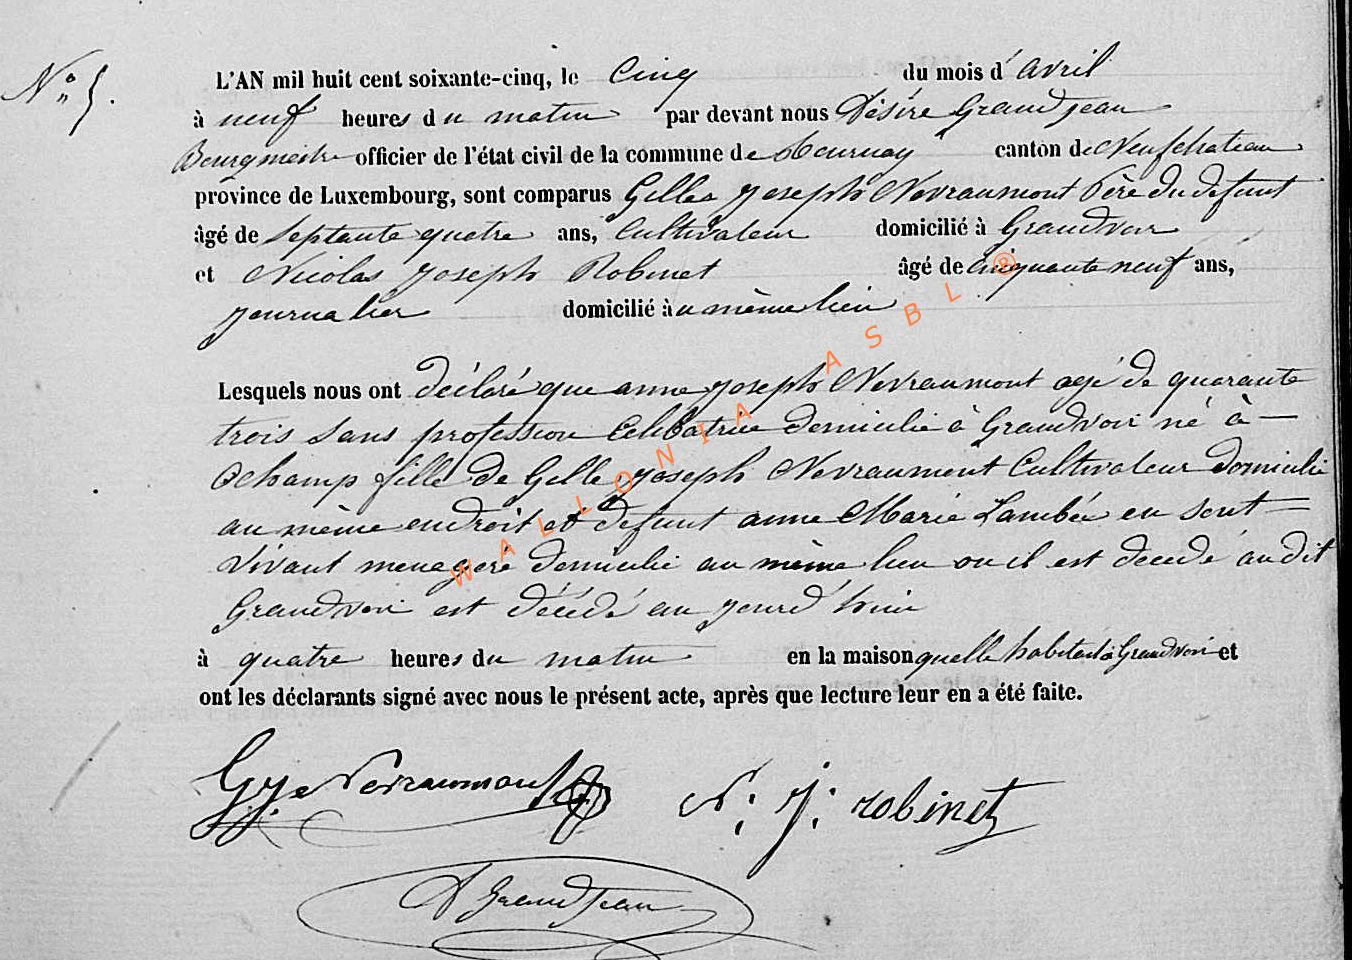 N° 5.
L'AN mil huit cent soixante-cinq, le Cinq du mois d' avril
à neuf heures du matin par devant nous Désiré Grandjean
Bourgmestre officier de l'état civil de la commune de Tournay canton de Neufchateau
province de Luxembourg, sont comparus Gelles Joseph Nevraumont Père du defunt
âgé de septante quatre ans, Cultivateur domicilié à Grandvoir
et Nicolas Joseph Robinet âgé de cinquante neuf ans,
journalier domicilié à u même lieu
Lesquels nous ont déclaré que anne joseph Nevraumont agé de quarante
trois sans profession Celibatrice domicilié à Grandvoir né à —
Ochamp fille de Gelle joseph Nevraumont Cultivateur domicilié
au même endroit et defunt anne Marie Lambée en sont —
vivant menagere domicilié au même lieu ou il est decedé au dit
Grandvoir est décédé au jourd'huie
à quatre heures du matin en la maison quelle habitait à Grandvoir et
ont les déclarants signé avec nous le présent acte, après que lecture leur en a été faite.
G J Nevraumont N: J: robinet
D Grandjean
WALLONIA ASBL ®